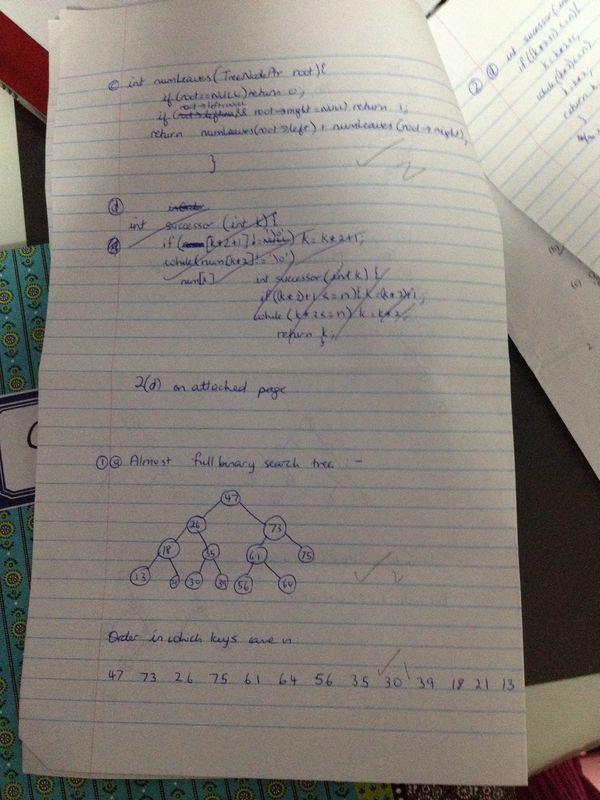 c int numLeaves(TreeNodePtr root){
if(root==NULL) return 0;
root→left==NULL
if( && root→right=NULL) return 1;
return numLeaves(root→left) + numLeaves(root→right);
}
2
d
int successor (int k) {
if ( [k*2+1] != '\0') k = k*2+1;
while(num[k*2]!= '\0')
num[k]
int successor(int k) {
if((k*2)+1 <= n){ k=(k*2)+1;
while (k*2<=n) k=k*2;
return k;
}
2(d) on attached page
1 a Almost full binary search tree :-
47
26 73
18 35 61 75
13 21 30 39 56 64
2
Order in which keys came in
47 73 26 75 61 64 56 35 30 39 18 21 13
1
2 a int successor (int
if((k*2)+1<=n){
k=k*2+1;
while(k*2<=n)
k=k*2;
return k;
}